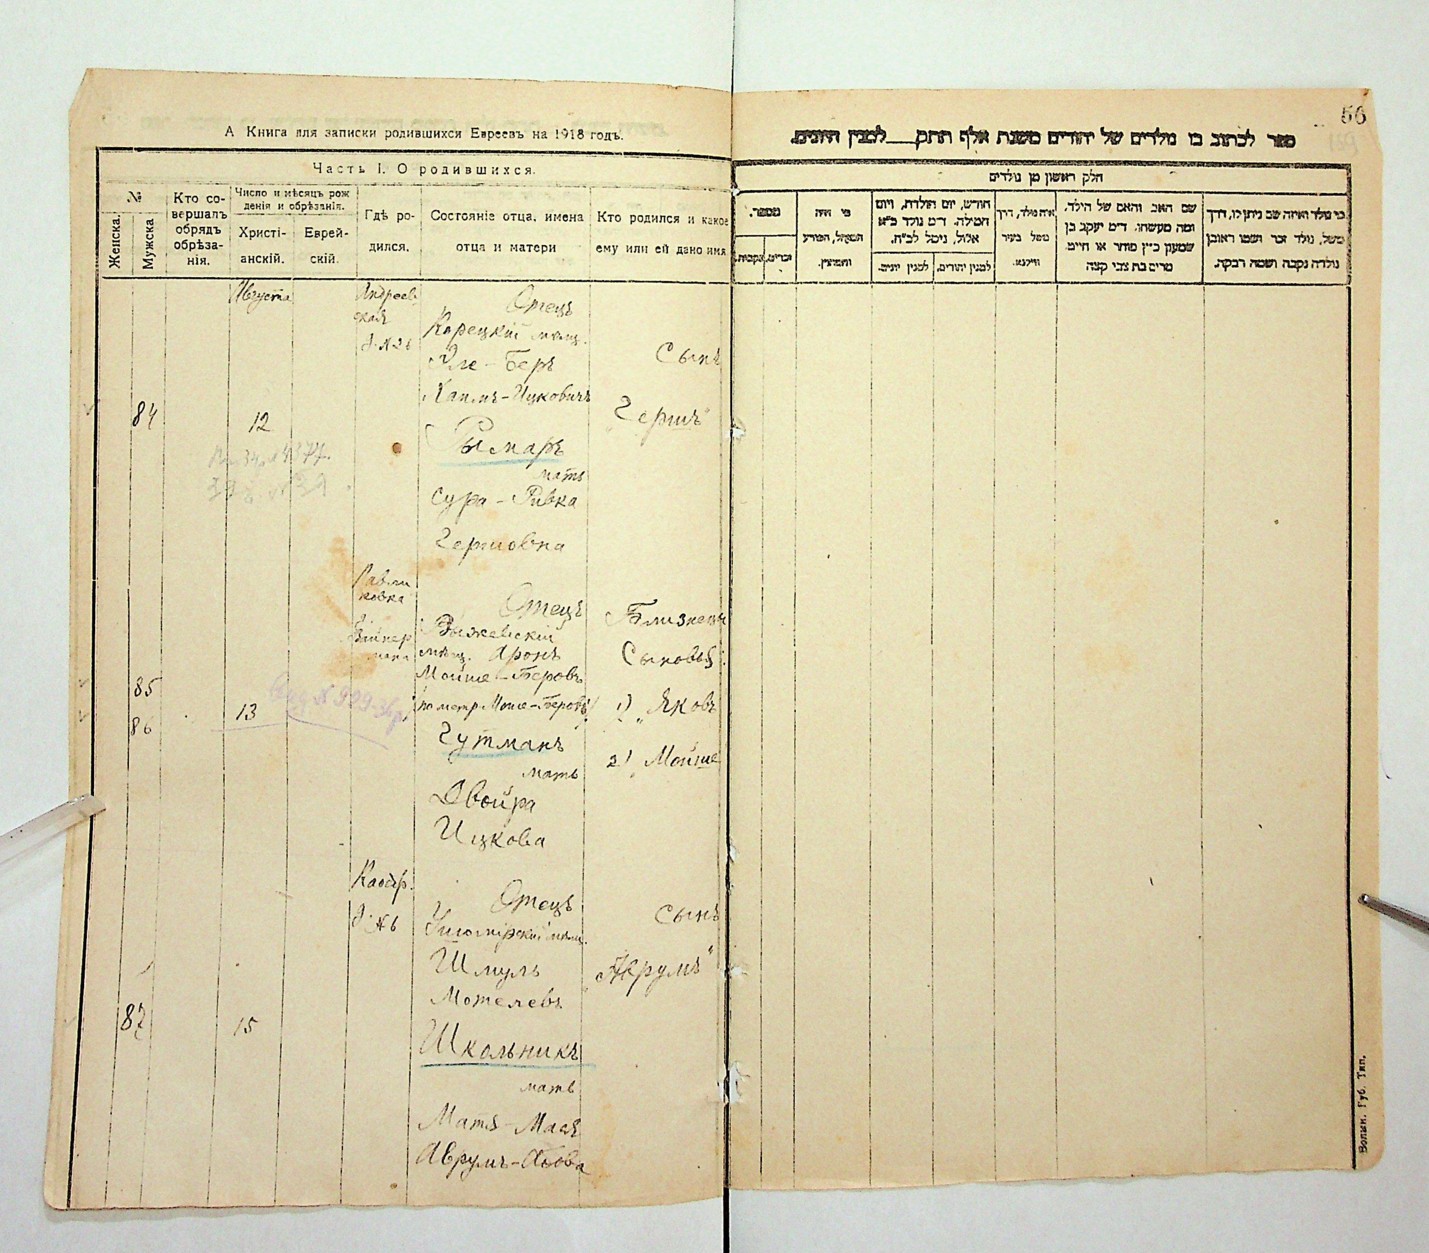 А Книга для записки родившихся Евреевъ на 1918 годъ.
Часть I. О родившихся.
№
Женска.
Мужска
Кто со-
вершалъ
обрядъ
обрѣза-
нія.
Число и мѣсяцъ рож
денія и обрѣзанія.
Христі-
анскій.
Еврей-
скій.
Гдѣ ро-
дился.
Состояніе отца, имена
отца и матери
Кто родился и какое
ему или ей дано имя
Августа
Андреев
ская
д. № 26
Отецъ
Корецкій мѣщ.
Эле-Беръ
Хаимъ-Ицковичъ
Рымаръ
мать
Сура-Ривка
Гершовна
Сынъ
„Гершъ"
84
12
Отецъ
мѣщ. Аронъ
Мойше-Беровъ
Гутманъ
мать
Двойра
Ицкова
Близнецы
Сыновья:
1) „Яковъ
2) „Мойше
85
86
13
Отецъ
Житомірскій мѣщ.
Шмуль
Мотелевъ
Школьникъ
мать
Матя-Мася
Аврумъ-Абова
Сынъ
87
15
56
ספר לכתוב בו נולדים של יהודים משנת אלף תתק___למנין היונים.
חלק ראשון מן נולדים
מספר.
זכרים.
נקבות.
מי היה
המוהל, הפורע
והמוצץ.
חודש, יום הולדת, ויום
המילה. ד״מ נולד כ״א
אלול, נימל לכ״ח.
למנין יונים.
למנין יהודים.
איה נולד, דרך
משל בעיר
ווילנא.
שם האב והאם של הילד.
ומה מעשהו. ד״מ יעקב בן
שמעון כ״ץ סוחר או חייט.
מרים בת צבי קצה
מי נולד ואיזה שם ניתן לו, דרך
משל, נולד זכר ושמו ראובן
נולדה נקבה ושמה רבקה.
Волын. Губ. Тип.